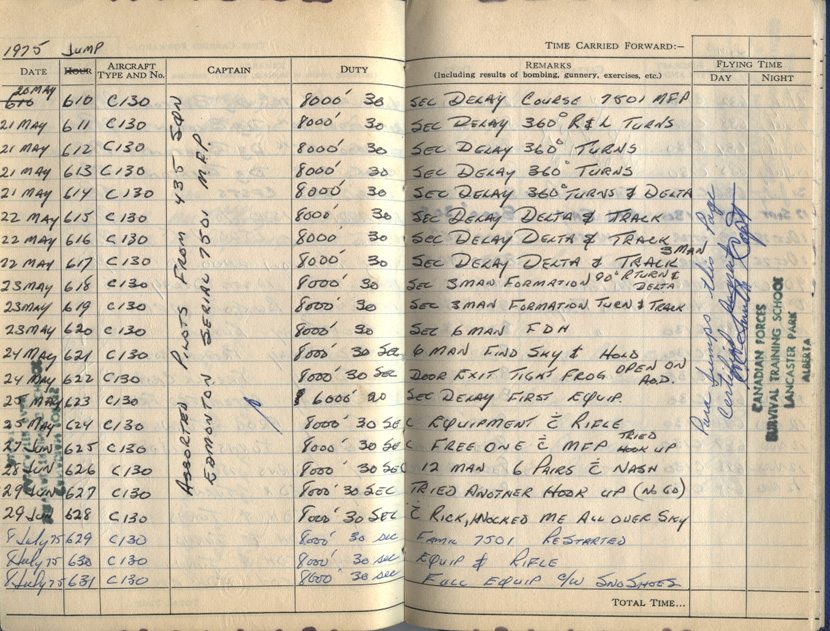 1975 JUMP
TIME CARRIED FORWARD:—
DATE HOUR AIRCRAFT TYPE AND No. CAPTAIN DUTY REMARKS (Including results of bombing, gunnery, exercises, etc.) FLYING TIME DAY NIGHT
20 MAY 610 C130 8000' 30 SEC DELAY COURSE 7501 MFP
21 MAY 611 C130 8000' 30 SEC DELAY 360° R&L TURNS
21 MAY 612 C130 8000' 30 SEC DELAY 360° TURNS
21 MAY 613 C130 8000' 30 SEC DELAY 360° TURNS
21 MAY 614 C130 8000' 30 SEC DELAY 360° TURNS & DELTA
22 MAY 615 C130 8000' 30 SEC DELAY DELTA & TRACK
22 MAY 616 C130 8000' 30 SEC DELAY DELTA & TRACK
22 MAY 617 C130 8000' 30 SEC DELAY DELTA & TRACK 3 MAN
23 MAY 618 C130 8000' 30 SEC 3 MAN FORMATION 90° R TURN & DELTA
23 MAY 619 C130 8000' 30 SEC 3 MAN FORMATION TURN & TRACK
23 MAY 620 C130 8000' 30 SEC 6 MAN FDN
24 MAY 621 C130 8000' 30 SEC 6 MAN FIND SKY & HOLD
24 MAY 622 C130 8000' 30 SEC DOOR EXIT TIGHT FROG OPEN ON
623 C130 6000' 20 SEC DELAY FIRST EQUIP.
624 C130 8000' 30 SEC EQUIPMENT C̄ RIFLE
27 JUN 625 C130 8000' 30 SEC FREE ONE C̄ MFP TRIED HOOK UP
28 JUN 626 C130 8000' 30 SEC 12 MAN 6 PAIRS C̄ NASH
29 JUN 627 C130 8000' 30 SEC TRIED ANOTHER HOOK UP (NO GO)
29 JUN 628 C130 8000' 30 SEC C̄ RICK, KNOCKED ME ALL OVER SKY
8 July 75 629 C130 8000' 30 SEC FAMIL 7501 RESTARTED
8 July 75 630 C130 8000' 30 SEC EQUIP & RIFLE
8 July 75 631 C130 8000' 30 SEC FULL EQUIP C/W SNOSHOES
TOTAL TIME...
ASSORTED PILOTS FROM 435 SQN
EDMONTON SERIAL 7501 MFP
Para jumps this page
Certified
Capt
CANADIAN FORCES
SURVIVAL TRAINING SCHOOL
LANCASTER PARK
ALBERTA